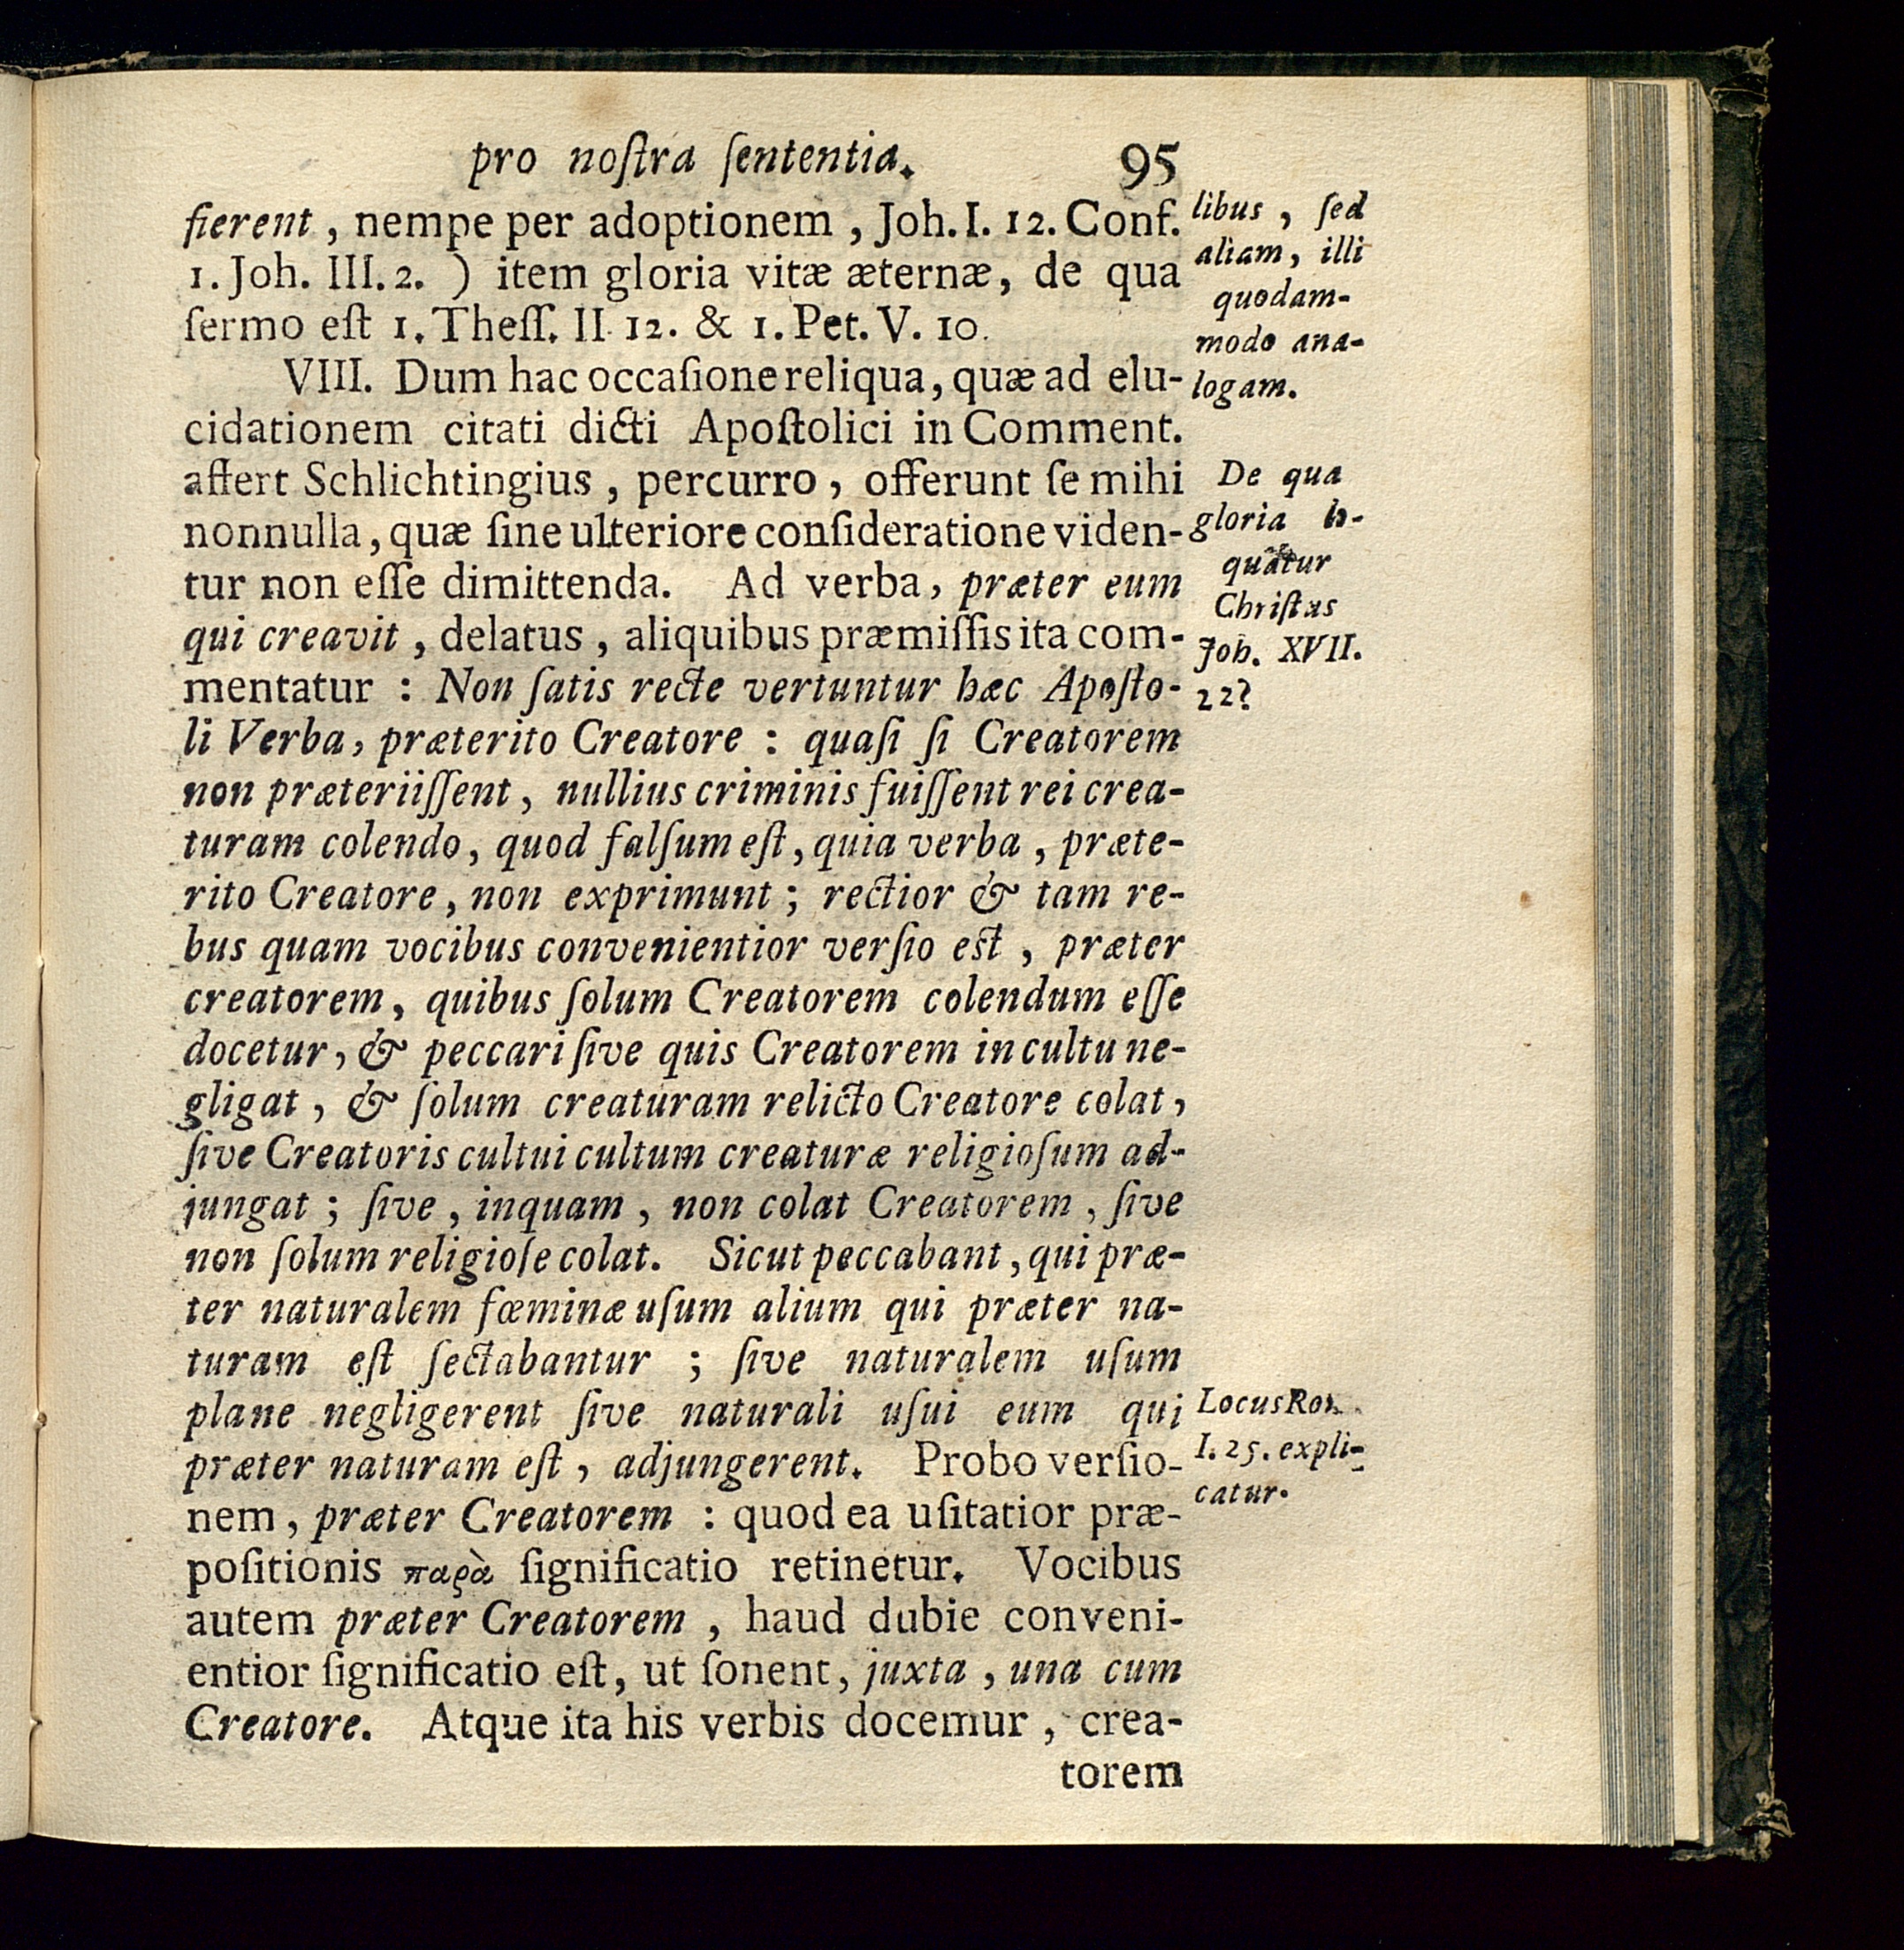 pro noſtra ſententia. 95
fierent, nempe per adoptionem, Joh. I. 12. Conf.
1. Joh. III. 2. ) item gloria vitæ æternæ, de qua
ſermo eſt 1. Theſſ. II. 12. & 1. Pet. V. 10.
VIII. Dum hac occaſione reliqua, quæ ad elu-
cidationem citati dicti Apoſtolici in Comment.
affert Schlichtingius, percurro, offerunt ſe mihi
nonnulla, quæ ſine ulteriore conſideratione viden-
tur non eſſe dimittenda. Ad verba, præter eum
qui creavit, delatus, aliquibus præmiſſis ita com-
mentatur : Non ſatis recte vertuntur hæc Apoſto-
li Verba, præterito Creatore : quaſi ſi Creatorem
non præteriiſſent, nullius criminis fuiſſent rei crea-
turam colendo, quod falſum eſt, quia verba, præte-
rito Creatore, non exprimunt ; rectior & tam re-
bus quam vocibus convenientior verſio eſt, præter
creatorem, quibus ſolum Creatorem colendum eſſe
docetur, & peccari ſive quis Creatorem in cultu ne-
gligat, & ſolum creaturam relicto Creatore colat,
ſive Creatoris cultui cultum creaturæ religioſum ad-
jungat ; ſive, inquam, non colat Creatorem, ſive
non ſolum religioſe colat. Sicut peccabant, qui præ-
ter naturalem fœminæ uſum alium qui præter na-
turam eſt ſectabantur ; ſive naturalem uſum
plane negligerent ſive naturali uſui eum qui
præter naturam eſt, adjungerent. Probo verſio-
nem, præter Creatorem : quod ea uſitatior præ-
poſitionis παρὰ ſignificatio retinetur. Vocibus
autem præter Creatorem, haud dubie conveni-
entior ſignificatio eſt, ut ſonent, juxta, una cum
Creatore. Atque ita his verbis docemur, crea-
torem
libus, ſed
aliam, illi
quodam-
modo ana-
logam.
De qua
gloria lo-
quatur
Chriſtus
Joh. XVII.
22?
Locus Rom.
I. 25. expli-
catur.